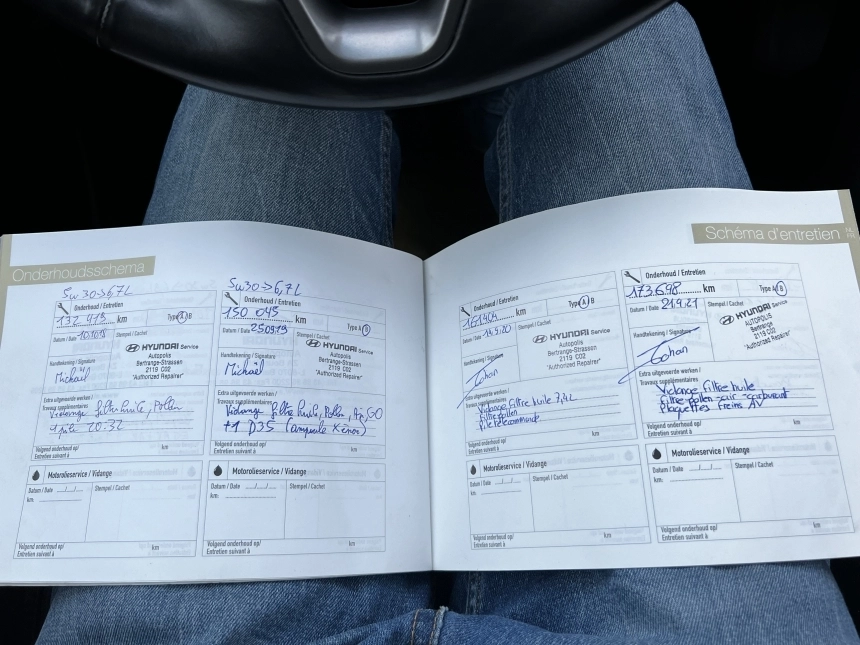 Onderhoudsschema
5w30->6,7L
Onderhoud / Entretien
132 913 km
Type A B
Datum / Date
Stempel / Cachet
HYUNDAI Service
Autopolis
Bertrange-Strassen
2119 C02
"Authorized Repairer"
Handtekening / Signature
Michaël
Extra uitgevoerde werken /
Travaux supplémentaires
Vidange filtre huile, Pollen
1 pile 2032
Volgend onderhoud op/
Entretien suivant à
km
Motorolieservice / Vidange
Datum / Date __/__/__
km:
Stempel / Cachet
Volgend onderhoud op/
Entretien suivant à
km
5w30->6,7L
Onderhoud / Entretien
150 045 km
Type A B
Datum / Date 250919
Stempel / Cachet
HYUNDAI Service
Autopolis
Bertrange-Strassen
2119 C02
"Authorized Repairer"
Handtekening / Signature
Michaël
Extra uitgevoerde werken /
Travaux supplémentaires
Vidange filtre huile, Pollen, Air, GO
+1 D3S (ampoule Xénon)
Volgend onderhoud op/
Entretien suivant à
km
Motorolieservice / Vidange
Datum / Date __/__/__
km:
Stempel / Cachet
Volgend onderhoud op/
Entretien suivant à
km
Schéma d'entretien
Onderhoud / Entretien
km
Type A B
Datum / Date 14.9.20
Stempel / Cachet
HYUNDAI Service
Autopolis
Bertrange-Strassen
2119 C02
"Authorized Repairer"
Handtekening / Signature
Johan
Extra uitgevoerde werken /
Travaux supplémentaires
Vidange filtre huile 7,4L
filtre pollen
pile télécommande
Volgend onderhoud op/
Entretien suivant à
km
Motorolieservice / Vidange
Datum / Date __/__/__
km:
Stempel / Cachet
Volgend onderhoud op/
Entretien suivant à
km
Onderhoud / Entretien
173.698 km
Type A B
Datum / Date 21.9.21
Stempel / Cachet
HYUNDAI Service
AUTOPOLIS
Bertrange
2119 C02
"Authorized Repairer"
Handtekening / Signature
Johan
Extra uitgevoerde werken /
Travaux supplémentaires
Vidange filtre huile
filtre pollen - air - carburant
Plaquettes Freins AV
Volgend onderhoud op/
Entretien suivant à
km
Motorolieservice / Vidange
Datum / Date __/__/__
km:
Stempel / Cachet
Volgend onderhoud op/
Entretien suivant à
km